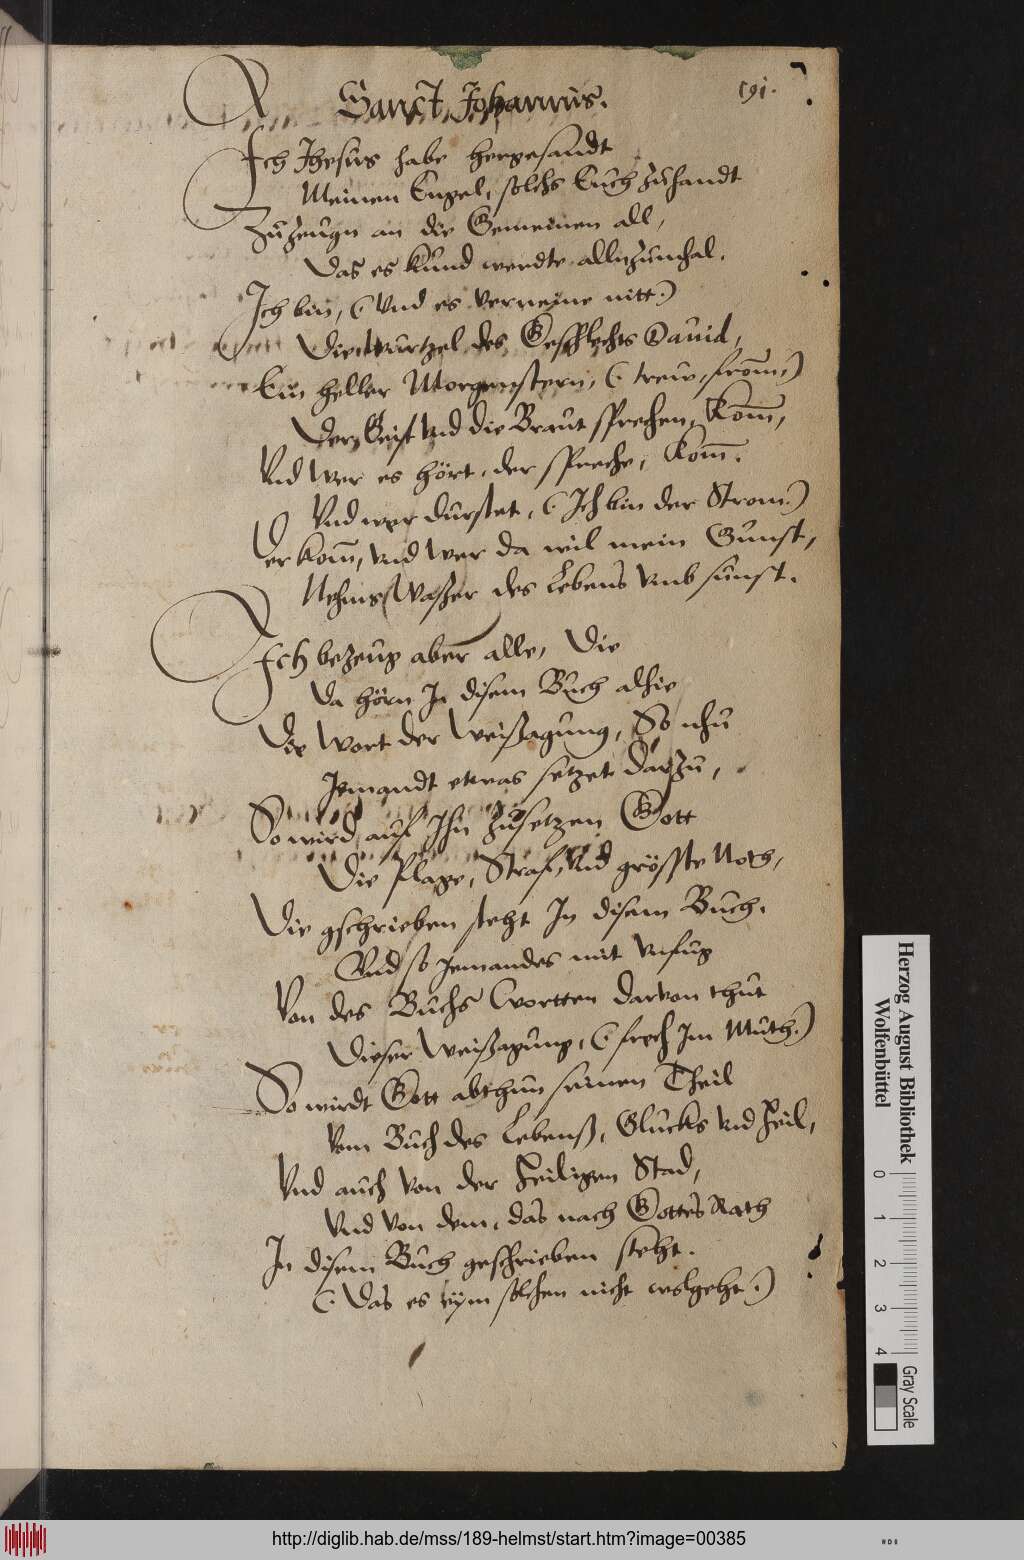 191.
Sanct Johannis.
Ich Jhesus habe hergesandt
Meinen Engel, solchs Euch zuhandt
Zuzeugn an die Gemeinen all,
Das es kund werdte allnzumhal.
Ich bin, (Vnd es verneine nitt.)
Die Wurtzel des Geschlechts Dauid,
Ein heller Morgenstern, (trew, from̄,)
Der Geist vnd die Braut sprechen, Kom̄,
Vnd wer es hört, der spreche, Kom̄.
Vnd wer durstet, (Ich bin der Strom.)
Der kom̄, vnd wer da wil mein Gunst,
Nehms Waßer des Lebens vmb sunst.
Ich bezeug aber alle, die
da hörn In disem Buch alhie
Die Wort der Weißagung, So nhu
Jemandt etwas setzet darzu,
So wird auf Ihn zusetzen Gott
Die Plage, Straf, vnd grösste Noth,
Die gschrieben steht In disem Buch.
Vnd so Jemandes mit vnfug
Von des Buchs Wortten darvon thut
Dieser Weißagung, (frech Im Muth.)
So wirdt Gott abthun seinen Theil
Vom Buch des Lebenß, Glucks vnd Heil,
Vnd auch von der Heiligen Stad,
Vnd von dem, das nach Gottes Rath
In disem Buch geschrieben steht.
(Das es eym solchen nicht wolgeht.)
Herzog August Bibliothek
Wolfenbüttel
0 1 2 3 4
Gray Scale
http://diglib.hab.de/mss/189-helmst/start.htm?image=00385